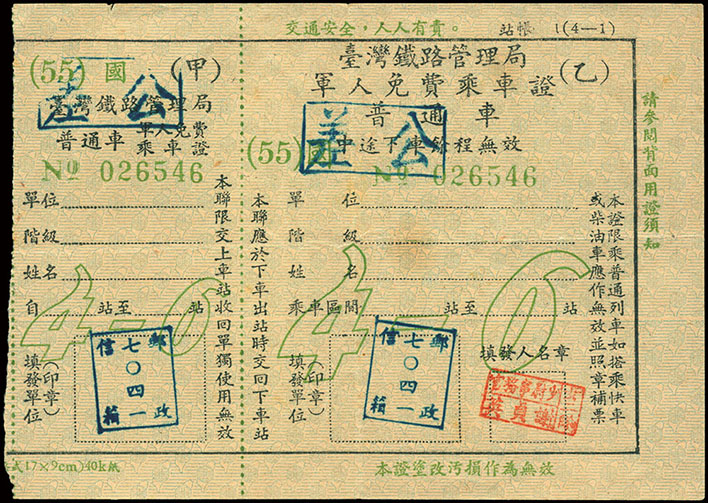 交通安全，人人有責。
站帳 1(4—1)
(55) 國 (甲)
公差
臺灣鐵路管理局
普通車 軍人免費乘車證
No 026546
單位
階級
姓名
自 站至 站
填發單位(印章)
郵政信箱
七〇四一
本聯限交上車站收回單獨使用無效
臺灣鐵路管理局
軍人免費乘車證 (乙)
普通車
公差
中途下車餘程無效
(55)
No 026546
單位
階級
姓名
乘車區間 站至 站
4—6
填發單位(印章)
郵政信箱
七〇四一
填發人名章
本聯應於下車出站時交回下車站
本證限乘普通列車如搭乘快車
或柴油車應作無效並照章補票
請參閱背面用證須知
式17×9cm)40k紙
本證塗改污損作為無效